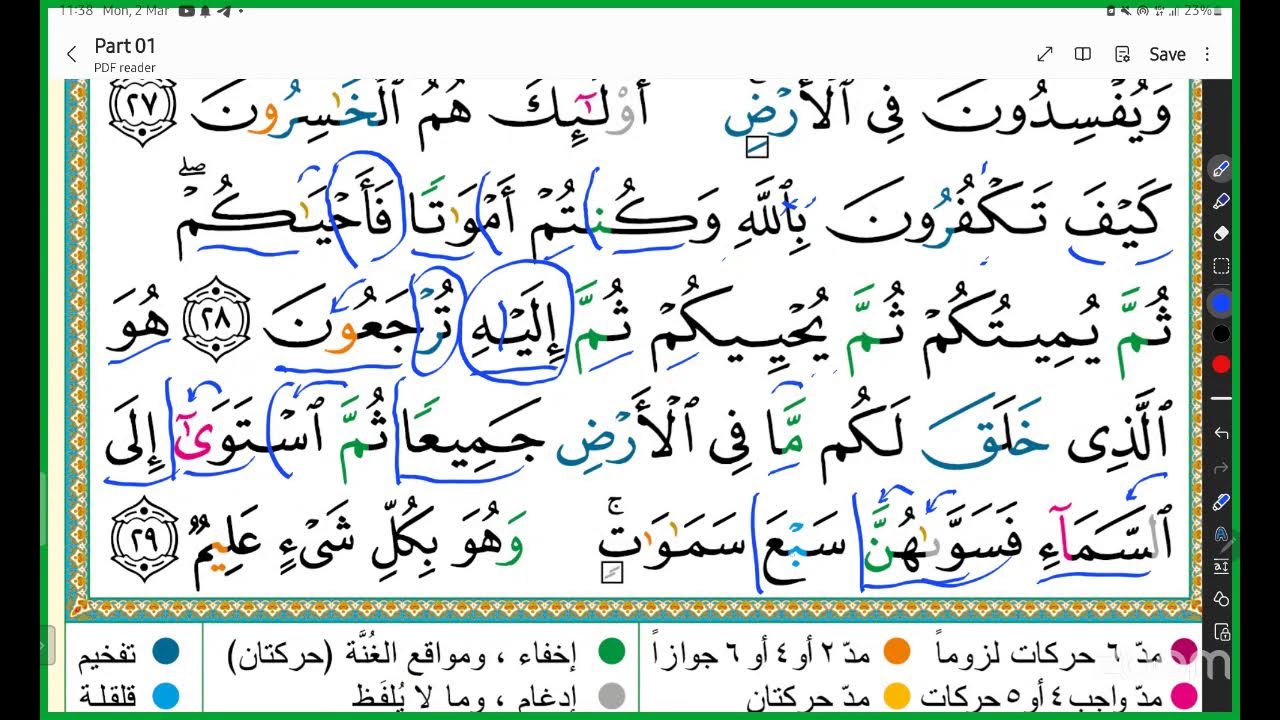 11:38 Mon, 2 Mar
23%
Part 01
PDF reader
Save
وَيُفْسِدُونَ فِى ٱلْأَرْضِ أُو۟لَـٰٓئِكَ هُمُ ٱلْخَـٰسِرُونَ ٢٧
كَيْفَ تَكْفُرُونَ بِٱللَّهِ وَكُنتُمْ أَمْوَٰتًا فَأَحْيَـٰكُمْ ۖ
ثُمَّ يُمِيتُكُمْ ثُمَّ يُحْيِيكُمْ ثُمَّ إِلَيْهِ تُرْجَعُونَ ٢٨ هُوَ
ٱلَّذِى خَلَقَ لَكُم مَّا فِى ٱلْأَرْضِ جَمِيعًا ثُمَّ ٱسْتَوَىٰٓ إِلَى
ٱلسَّمَآءِ فَسَوَّىٰهُنَّ سَبْعَ سَمَـٰوَٰتٍ ۚ وَهُوَ بِكُلِّ شَىْءٍ عَلِيمٌ ٢٩
مدّ ٦ حركات لزوماً مدّ ٢ أو ٤ أو ٦ جوازاً إخفاء ، ومواقع الغُنَّة (حركتان) تفخيم
مدّ واجب ٤ أو ٥ حركات مدّ حركتان إدغام ، وما لا يُلفَظ قلقلة
zoom